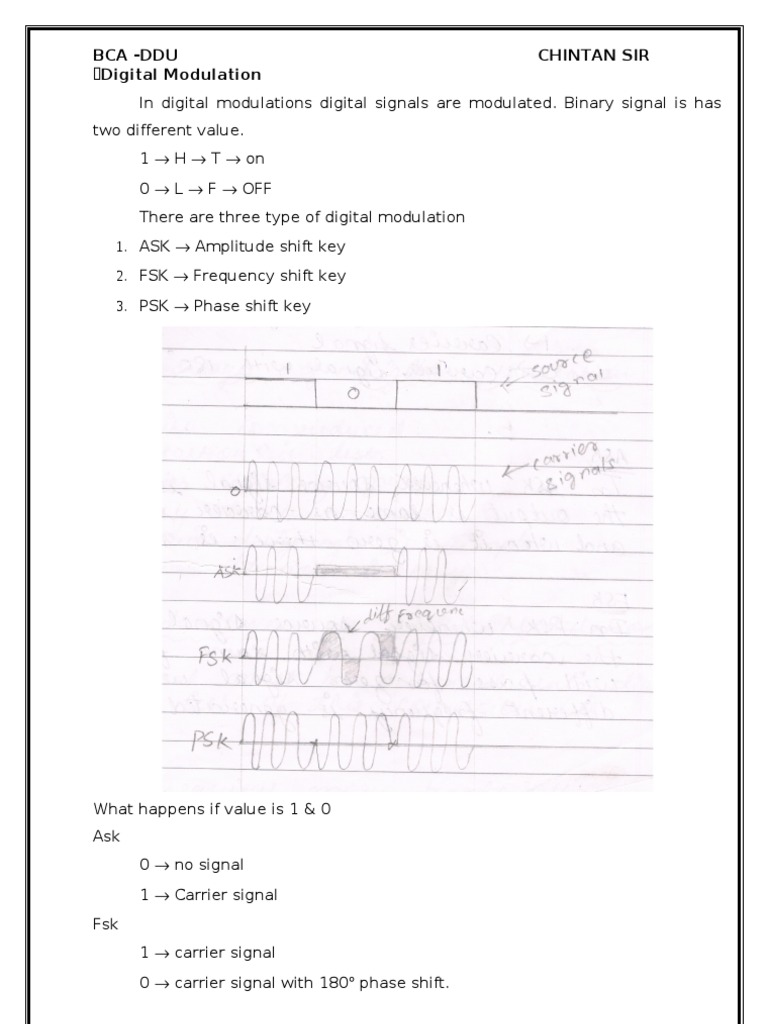 BCA -DDU CHINTAN SIR
Digital Modulation
In digital modulations digital signals are modulated. Binary signal is has
two different value.
1 → H → T → on
0 → L → F → OFF
There are three type of digital modulation
1. ASK → Amplitude shift key
2. FSK → Frequency shift key
3. PSK → Phase shift key
1 0 1 source
signal
carrier
signals
0
ASK
diff frequen
FSK
PSK
What happens if value is 1 & 0
Ask
0 → no signal
1 → Carrier signal
Fsk
1 → carrier signal
0 → carrier signal with 180° phase shift.